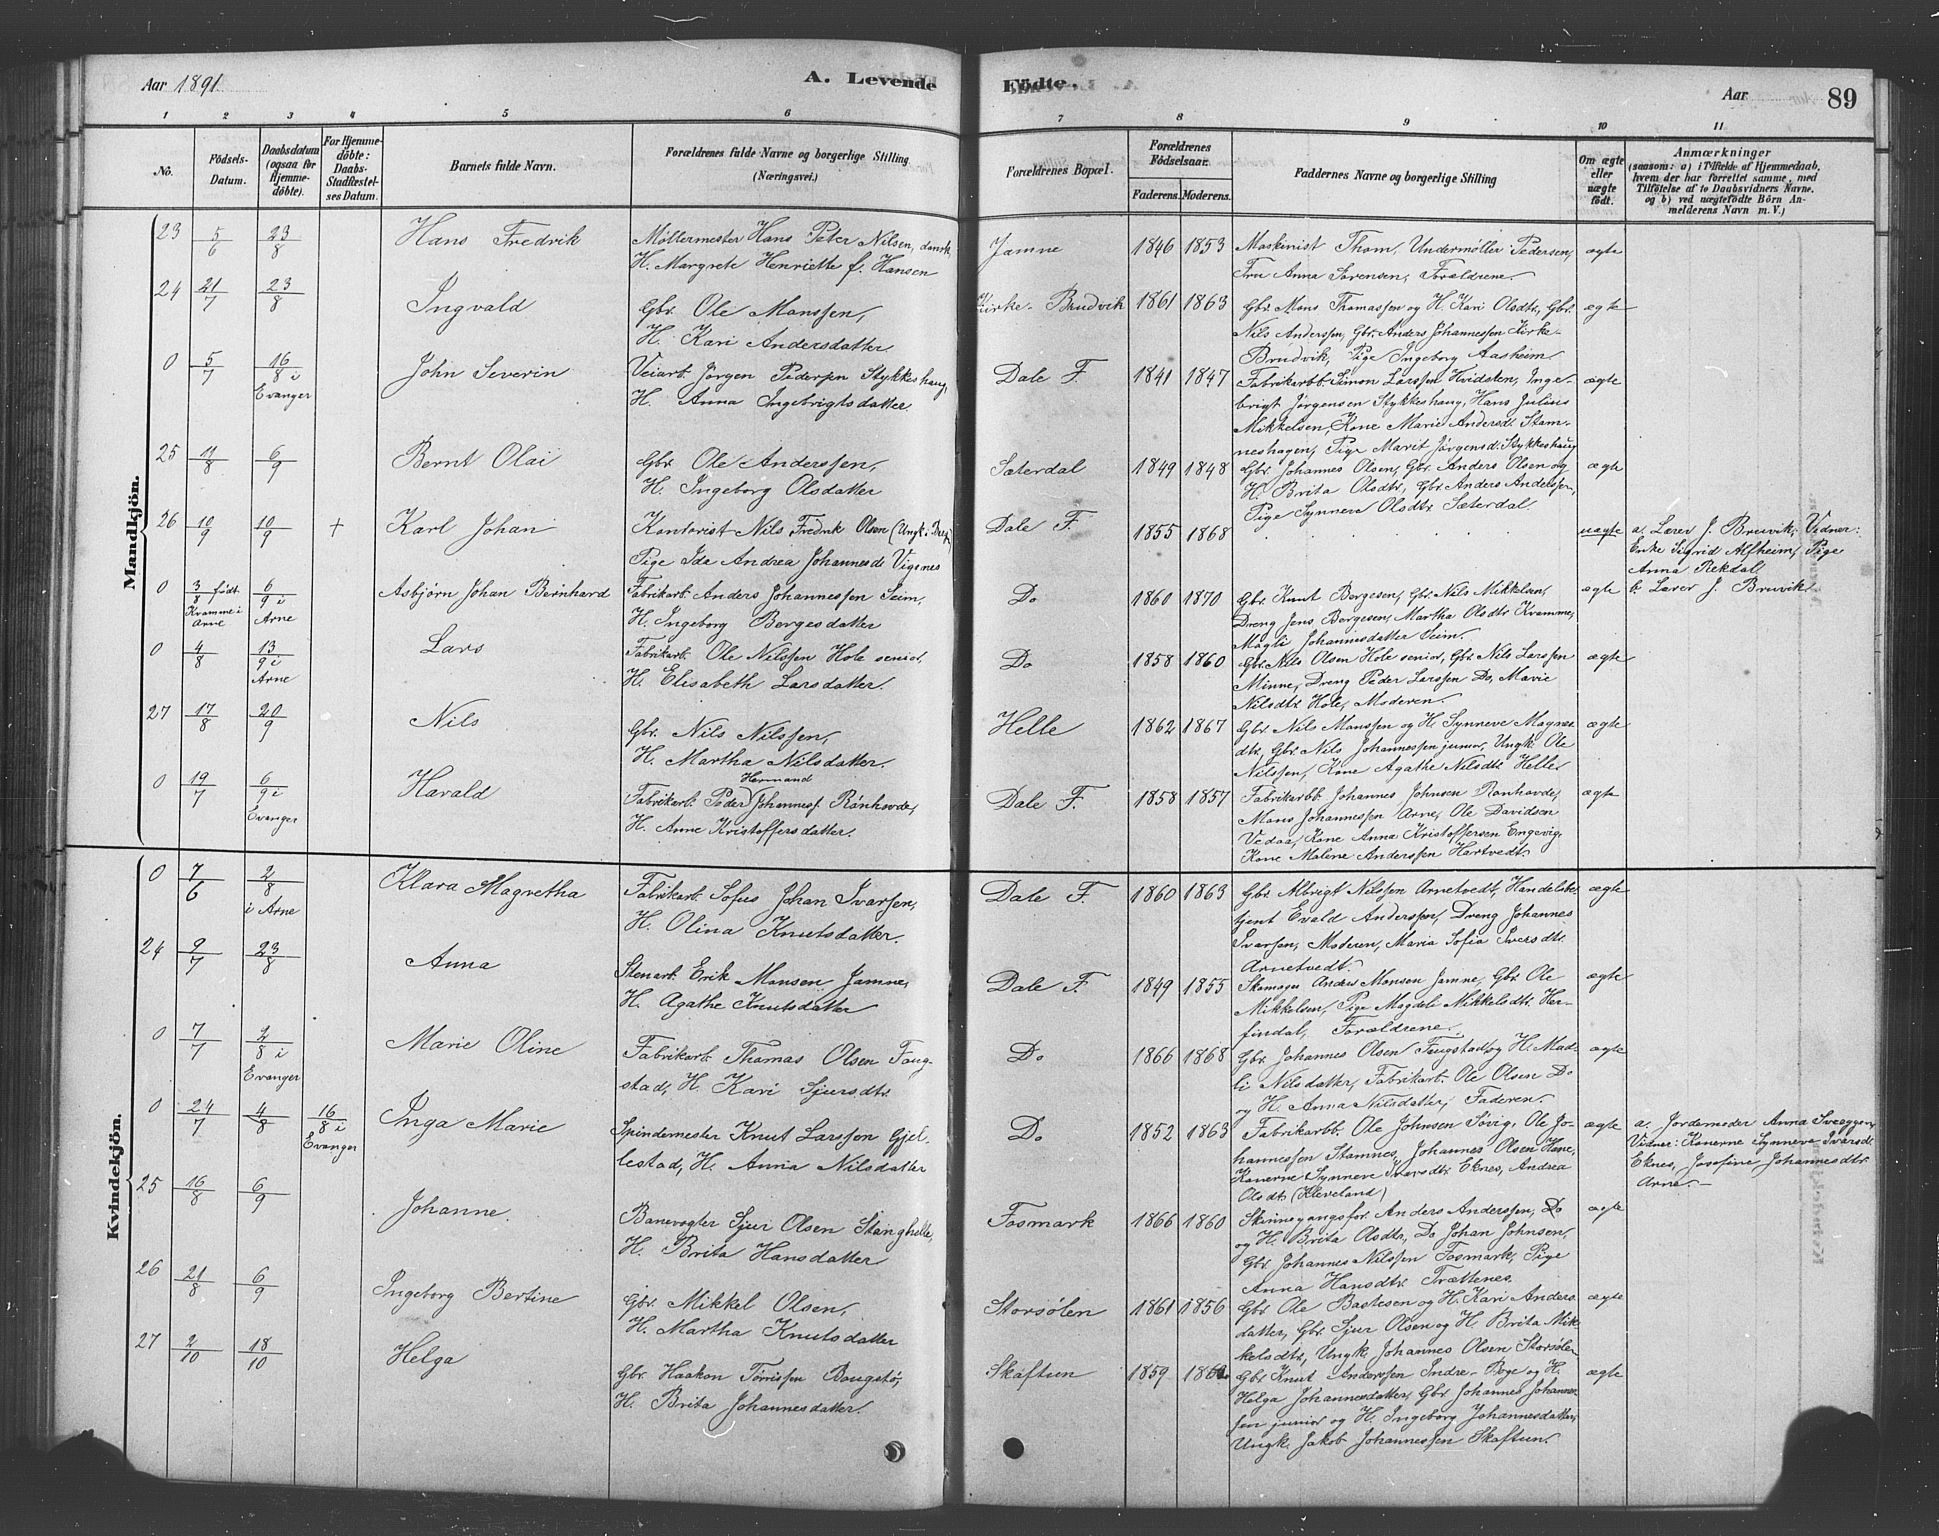 Aar 1891.
A. Levende
Födte.
Aar
89
1 2 3 4 5 6 7 8 9 10 11
No.
Födsels-
Datum.
Daabsdatum
(ogsaa for
Hjemme-
döbte).
For Hjemme-
döbte:
Daabs-
Stadfæstel-
ses Datum.
Barnets fulde Navn.
Forældrenes fulde Navne og borgerlige Stilling
(Næringsvei.)
Forældrenes Bopæl.
Forældrenes
Födselsaar.
Faderens.
Moderens.
Faddernes Navne og borgerlige Stilling
Om ægte
eller
uægte
födt.
Anmærkninger
(saasom: a) i Tilfælde af Hjemmedaab,
hvem der har forrettet samme, med
Tilföielse af to Daabsvidners Navne.
og b) ved uægtefödte Börn An-
melderens Navn m. V.)
Mandkjön.
23 5/6 23/8 Hans Fredrik
Møllermester Hans Peter Nilsen, dansk
H. Margrete Henriette f. Hansen
Jamne 1846 1853
Maskinist Thom, Undermøller Pedersen,
Fru Anna Sørensen, Forældrene.
ægte
24 21/7 23/8 Ingvald
Gbr. Ole Monssen,
H. Kari Andersdatter
Kirke-Brudvik 1861 1863
Gbr. Mons Thomassen og H. Kari Olsdtr, Gbr.
Nils Anderssen, Gbr. Anders Johannessen Kirke-
Brudvik, Pige Ingeborg Aasheim
ægte
0 5/7 16/8 i Evanger John Severin
Veiarb. Jørgen Pedersen Stykkeshaug,
H. Anna Ingebrigtsdatter
Dale F. 1841 1847
Fabrikarbb. Simon Larssen Hvidsten, Inge-
brigt Jørgensen Stykkeshaug, Hans Julius
Mikkelsen, Kone Marie Andersdt. Stam-
neshagen, Pige Marit Jørgensd. Stykkeshaug
ægte
25 11/8 6/9 Bernt Olai
Gbr. Ole Anderssen,
H. Ingeborg Olsdatter
Sæterdal 1849 1848
Gbr. Johannes Olsen, Gbr. Anders Olsen og
H. Brita Olsdtr, Gbr. Anders Anderssen,
Pige Synneve Olsdtr. Sæterdal.
ægte
26 10/9 10/9 + Karl Johan
Kontorist Nils Fredrik Olsen (Ungk.
Pige Ida Andrea Johannesd. Vigenes
Dale F. 1855 1868
uægte
a. Lærer J. Bruvik; Vidner:
Enke Sigrid Alfheim, Pige
Anna Rekdal.
b. Lærer J. Bruvik
0 3/8 født Kvamme i Arne 6/9 i Arne Asbjørn Johan Bernhard
Fabrikarb. Anders Johannessen Seim,
H. Ingeborg Børgesdatter
Do 1860 1870
Gbr. Knut Børgesen, Gbr. Nils Mikkelsen,
Dreng Jens Børgesen, Martha Olsdtr. Kvamme,
Magli Johannesdatter Seim.
ægte
0 4/8 13/9 i Arne Lars
Fabrikarb. Ole Nilssen Hole senior,
H. Elisabeth Larsdatter.
Do 1858 1860
Gbr. Nils Olsen Hole senior, Gbr. Nils Larssen
Minne, Dreng Peder Larssen Do, Marie
Nilsdtr. Hole, Moderen.
ægte
27 17/8 20/9 Nils
Gbr. Nils Nilssen,
H. Martha Nilsdatter.
Helle 1862 1867
Gbr. Nils Monssen og H. Synneve Magnes-
dtr, Gbr. Nils Johannessen junior, Ungk. Ole
Nilssen, Kone Agathe Nilsdtr. Helle
ægte
0 19/7 6/9 i Evanger Harald
Hermand
Fabrikarb. Peder Johannesf. Rönhovde,
H. Anne Kristoffersdatter.
Dale F. 1858 1857
Fabrikarbb. Johannes Johnsen Rønhovde,
Mons Johannessen Arne, Ole Davidsen
Vedaa, Kone Anna Kristoffersen Engevig,
Kone Malene Anderssen Hartvedt.
ægte
Kvindekjön.
0 7/6 2/8 i Arne Klara Magretha
Fabrikarb. Sofus Johan Ivarsen,
H. Olina Knutsdatter.
Dale F. 1860 1863
Gbr. Albrigt Nilssen Arnetvedt, Handelsbe-
tjent Evald Anderssen, Dreng Johannes
Ivarsen, Moderen, Maria Sofia Iversdtr.
Arnetvedt.
ægte
24 9/7 23/8 Anna
Stenarb. Erik Monsen Jamne,
H. Agathe Knutsdatter
Dale F 1849 1855
Skomager Anders Monsen Jamne, Gbr. Ole
Mikkelsen, Pige Magdeli Mikkelsdtr. Her-
findal, Forældrene.
ægte
0 7/7 2/8 i Evanger Marie Oline
Fabrikarb. Thomas Olsen Faug-
stad, H. Kari Sjursdtr.
Do 1866 1868
Gbr. Johannes Olsen Faugstad og H. Mad-
li Nilsdatter, Fabrikarb. Ole Olsen Do
og H. Anna Nilsdatter, Faderen.
ægte
0 24/7 4/8 16/8 i Evanger Inga Marie
Spindemester Knut Larssen Gjel-
lestad, H. Anna Nilsdatter
Do 1852 1863
Fabrikarbb. Ole Johnsen Søvig, Ole Jo-
hannessen Stamnes, Johannes Olsen Hane,
Konerne Synneve Ivarsdtr. Eknes, Andrea
Olsdt. (Kleveland)
ægte
a. Jordemoder Anna Sveggen,
Vidner: Konerne Synneve Ivarsd.
Eknes, Josefine Johannesdtr.
Arne.
25 16/8 6/9 Johanne.
Banevogter Sjur Olsen Stanghelle,
H. Brita Hansdatter
Fosmark 1866 1860
Skinnegangsfor. Anders Anderssen, Do
og H. Brita Olsdtr, Do Johan Johnsen,
Gbr. Johannes Nilssen Fosmark, Pige
Anna Hansdtr. Trættenes.
ægte
26 21/8 6/9 Ingeborg Bertine
Gbr. Mikkel Olsen,
H. Martha Knutsdatter
Storsølen 1861 1856
Gbr. Ole Bastesen og H. Kari Anders-
datter, Gbr. Sjur Olsen og H. Brita Mik-
kelsdtr, Ungk. Johannes Olsen Storsølen
ægte
27 2/10 18/10 Helga
Gbr. Haakon Tørrissen Bougstø,
H. Brita Johannesdatter.
Skaftun 1859
Gbr. Knut Anderssen Indre-Boge og H.
Helga Johannesdatter, Gbr. Johannes Johannes-
sen junior og H. Ingeborg Johannesdatter,
Ungk. Jakob Johannessen Skaftun.
ægte